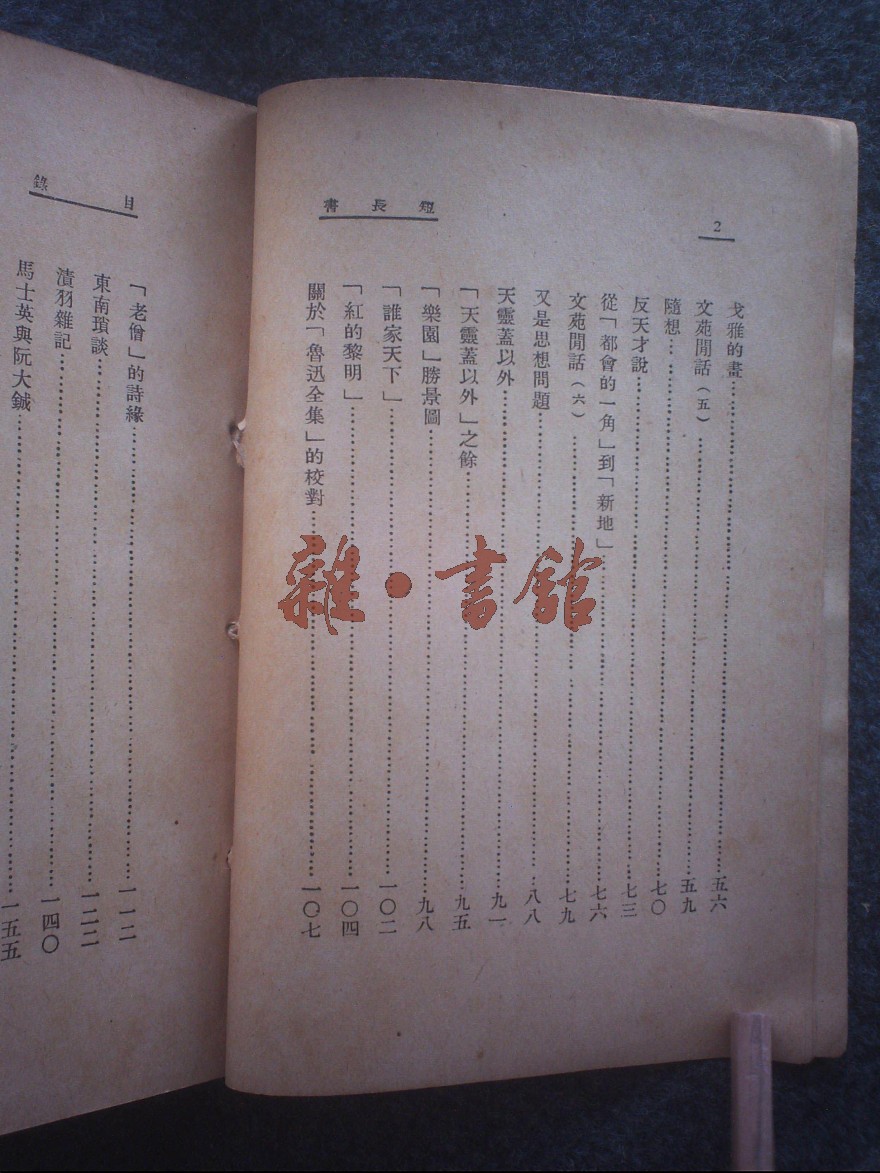 2
書長短
戈雅的畫……五六
文苑閒話（五）……五九
隨想……七〇
反天才說……七三
從「都會的一角」到「新地」……七六
文苑閒話（六）……七九
又是思想問題……八八
天靈蓋以外……九一
「天靈蓋以外」之餘……九五
「樂園」勝景圖……九八
「誰家天下」……一〇二
「紅的黎明」……一〇四
關於「魯迅全集」的校對……一〇七
錄目
「老僧」的詩緣……一一二
東南瑣談……一二二
漬羽雜記……一四〇
馬士英與阮大鋮……一五五
雜·書舘